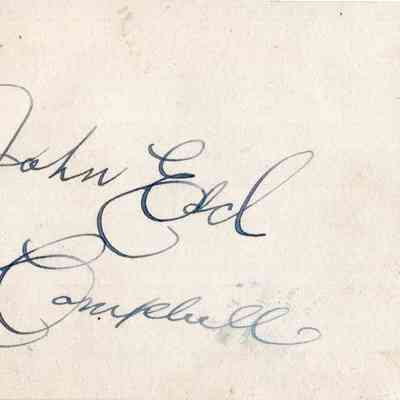 John Ed
Campbell